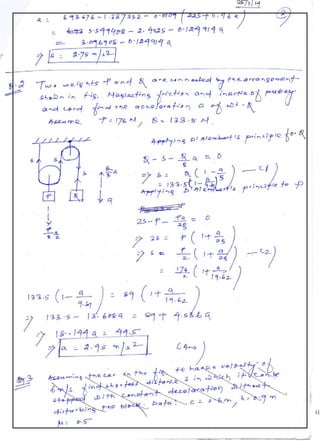 25/1/19
②
a = 693.676 - 1.387352 - 0.0109 (225 + h.96 a)
= 3.599908 - 2.4525 - 0.129919 a
= 3.096908 - 0.129919 a
⇒ a = 2.75 m/s2
Q-2 Two weights P and Q are connected by the arrangement
shown in fig. Neglecting friction and inertia of pulley
and cord find the acceleration a of wt-Q
Assume P = 178 N, Q = 133.5 N.
Applying D'Alembert's principle for Q
Q - S - Q/g a = 0
⇒ S = Q (1 - a/g) —(1)
= 133.5 (1 - a/g)
Applying D'Alembert's principle to P
2S - P - Pa/2g = 0
⇒ 2S = P (1 + a/2g)
⇒ S = P/2 (1 + a/2g) —(2)
= 178/2 (1 + a/19.62)
133.5 (1 - a/9.81) = 89 (1 + a/19.62)
⇒ 133.5 - 13.608a = 89 + 4.536a
⇒ 18.144 a = 44.5
⇒ a = 2.45 m/s2 (Ans)
Q.3 Assuming the car in the fig. to have a velocity of
6 m/s find shortest distance s in which it can be
stopped with constant deceleration without
disturbing the block. Data: c = 0.6m, h = 0.9 m
μ = 0.5